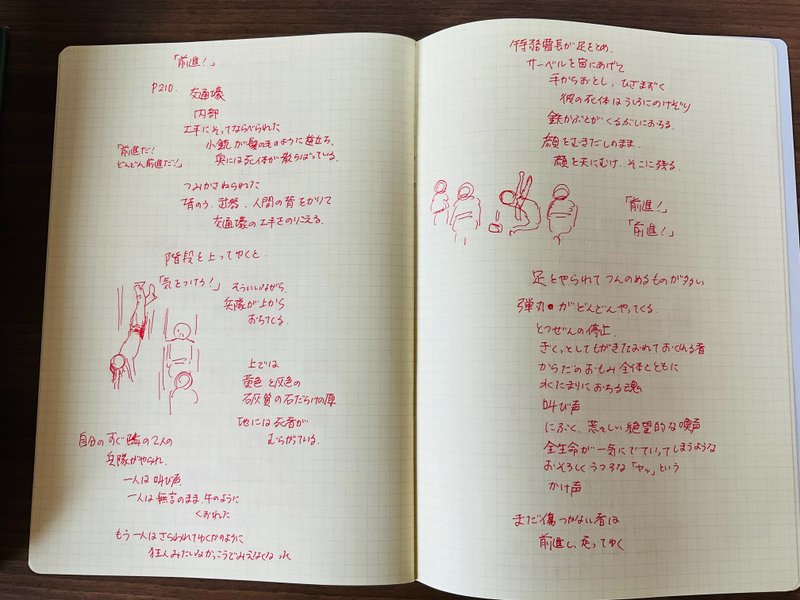 「前進！」
P210. 交通壕
内部
土手にそってならべられた
小銃が髪の毛のように逆立ち、
奥には死体が散らばっている。
「前進だ！
どんどん前進だ！」
つみかさねられた
背のう、武器、人間の背をかりて
交通壕の土手をのりこえる。
階段を上ってゆくと、
「気をつけろ！」そういいながら、
兵隊が上から
おちてくる。
上では
黄色と灰色の
石灰質の石だらけの原
地には死者が
むらがっている。
自分のすぐ隣の2人の
兵隊がやられ、
一人は叫び声
一人は無言のまま、牛のように
くおれた
もう一人はさらわれてゆくかのように
狂人みたいなかっこうでみえなくなった
特務曹長が足をとめ、
サーベルを宙にあげて
手からおとし、ひざまずく
彼の死体はうしろにのけぞり
鉄かぶとがくるぶしにおちる。
顔をむきだしのまま、
顔を天にむけ、そこに残る。
「前進！」
「前進！」
足をやられてつんのめるものが多い
弾丸がどんどんやってくる。
とつぜんの停止
ぎくっとしてもがきたおれておくれる者
からだのおもみ全体とともに
水たまりにおちる魂
叫び声
にぶく、荒々しい絶望的な喚声
全生命が一気にでていってしまうような
おそろしくうつろな「ヤッ」という
かけ声
まだ傷つかない者は
前進し、走ってゆく